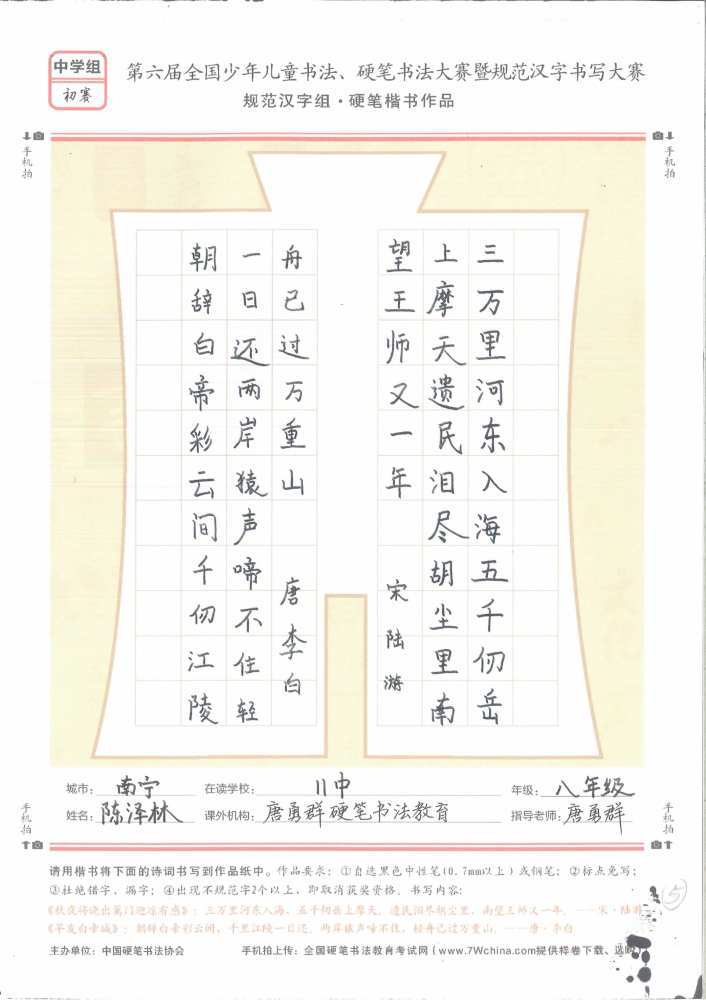 中学组
初赛
第六届全国少年儿童书法、硬笔书法大赛暨规范汉字书写大赛
规范汉字组·硬笔楷书作品
手机拍
手机拍
三万里河东入海五千仞岳
上摩天遗民泪尽胡尘里南
望王师又一年
宋陆游
舟已过万重山
唐李白
一日还两岸猿声啼不住轻
朝辞白帝彩云间千仞江陵
城市：南宁 在读学校：11中 年级：八年级
姓名：陈泽林 课外机构：唐勇群硬笔书法教育 指导老师：唐勇群
手机拍
手机拍
请用楷书将下面的诗词书写到作品纸中。作品要求：①自选黑色中性笔(0.7mm以上)或钢笔；②标点免写；
③杜绝错字、漏字；④出现不规范字2个以上，即取消获奖资格。书写内容：
《秋夜将晓出篱门迎凉有感》：三万里河东入海，五千仞岳上摩天。遗民泪尽胡尘里，南望王师又一年。——宋·陆游
《早发白帝城》：朝辞白帝彩云间，千里江陵一日还。两岸猿声啼不住，轻舟已过万重山。——唐·李白
主办单位：中国硬笔书法协会 手机拍上传：全国硬笔书法教育考试网（www.7Wchina.com提供样卷下载、选购）
5